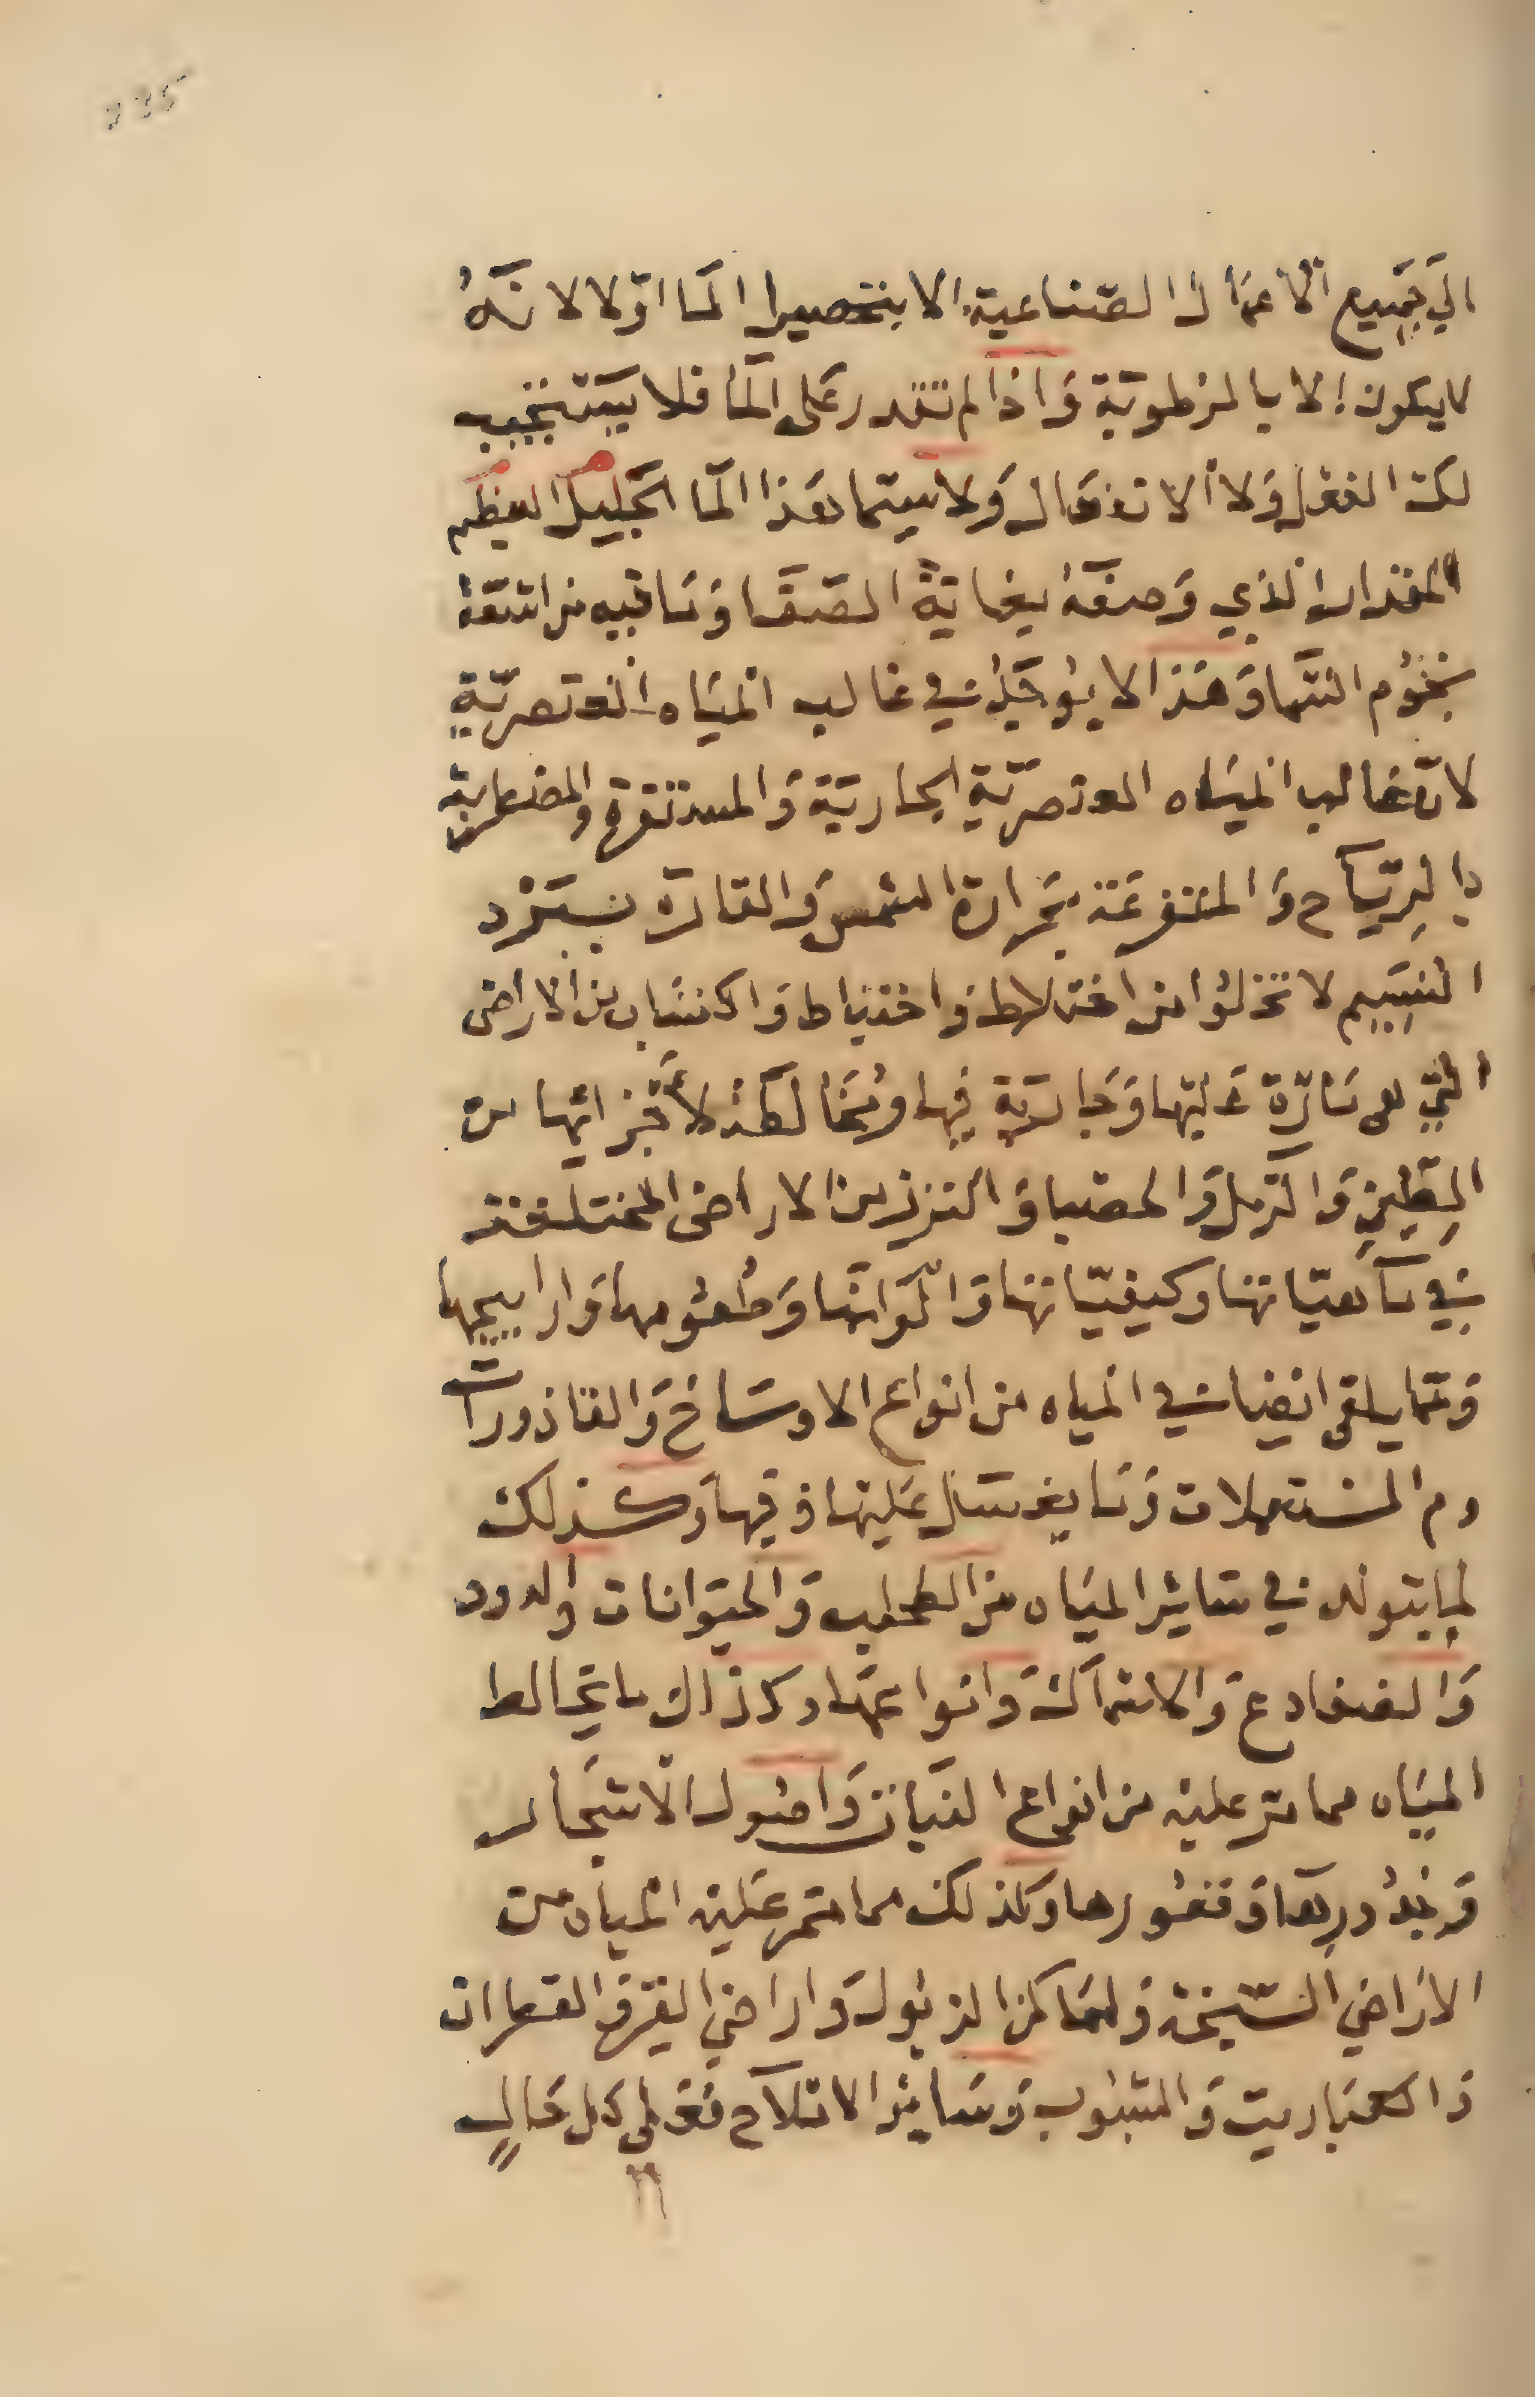 235
الَي جَميع الاعمَال الصّناعية الا بتحصيل المَا اوّلا لانَّهُ
لايكون الا بالرطوبَة وَاذا لم تقدر عَلى المَا فلا يَستجيب
لك الفعل وَلا الانفعَال وَلا سيّما هَذا المَا الجَليل العظيم
المقدار الذي وَصفهُ بغايَةِ الصَفَا وَمَا فيه من اشعَة
نجوُم السَّما وَهَذا لا يوُجَد في غالب الميَاه العنصريّة
لانّ غالب الميَاه العنصريّة الجاريَة وَالمستنقرة والمضعابة
بالرِيَاح وَالمتفرعَة بحَرارة الشمس وَالقارّة ببَرْد
النسيم لا تخلوُا من اختلاط وَاختباط وَاكتسَاب من الاراضى
التي هى مَارّة عَليْها وَجَاريَة فيها وَمخَالطة لاَجْزائها من
الطِين وَالرّمل وَالحصبا وَالنزز من الاراضى المختلفة
في مَاهيّاتها وكيفيّاتها وَالوَانها وَطعُومها وَاراييحها
وَممّا يلقى ايضا في المياه من انواع الاوسَاخ وَالقاذورات
وم المستعملات وَمَا يغسَل عَليْها وَفيها وَكذلك
لما يتولد في سَائر الميَاه من الطحلب وَالحيَوانات والدود
وَالضفادع وَالاسماك وَانواعهَا وكذلك ما يخالط
الميَاه مما تمر عليْه من انواع النبَات وَاصُول الاشجَار
وَبذُورهَا وَقشُورها وكذلك مما تمر عَليْه المياه من
الارَاضي السَّبخة وَاماكن الزبُول وَاراضي القير وَالقطران
وَالكبَاريت وَالشبُوب وَسَائر الاملاح فعَلي كل حَالٍ